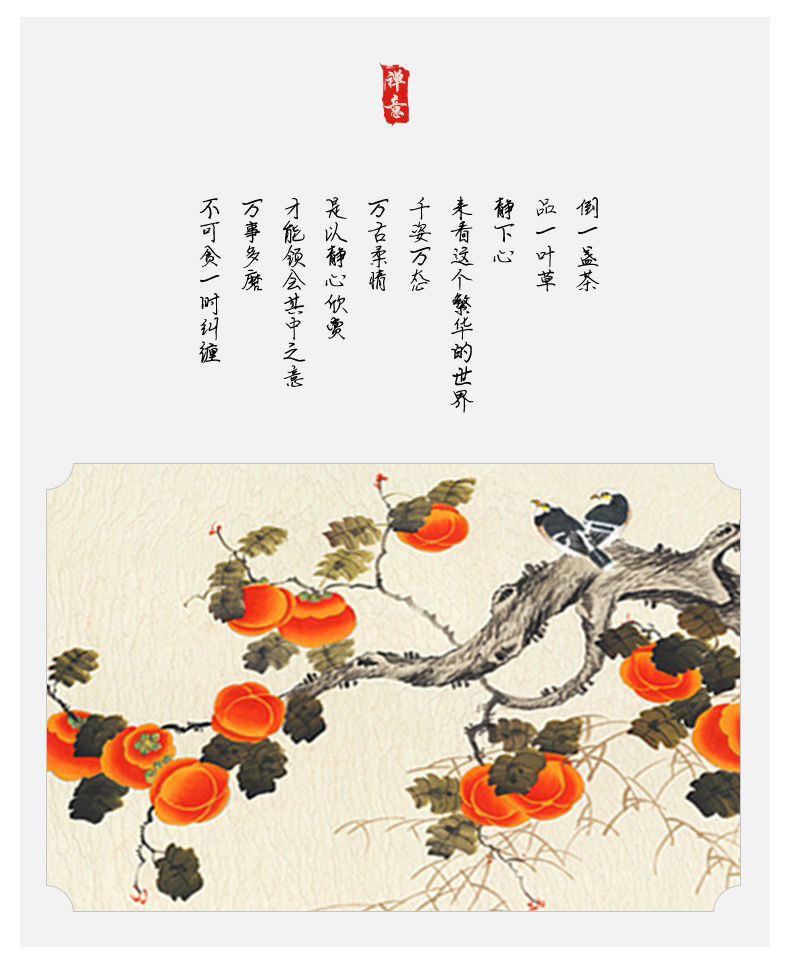 禅意
倒一盏茶
品一叶草
静下心
来看这个繁华的世界
千姿万态
万古柔情
是以静心欣赏
才能领会其中之意
万事多磨
不可贪一时纠缠